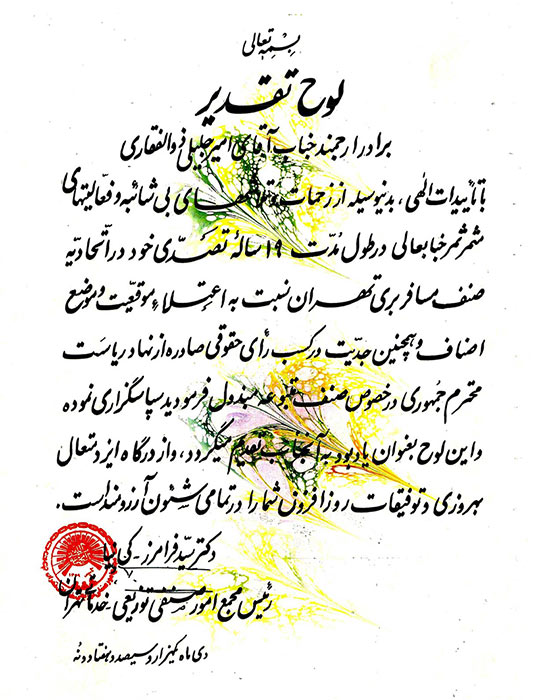 بسمه تعالی
لوح تقدیر
برادر ارجمند جناب آقای امیر جلیلی ذوالفقاری
با تأییدات الهی، بدینوسیله از زحمات و تلاشهای بی شائبه و فعّالیتهای
مثمر ثمر جنابعالی در طول مُدّت ۱۹ سالهٔ تصدّی خود در اتحادیه
صنف مسافربری تهران نسبت به اِعتلاءِ موقعیّت و موضع
اصناف و همچنین جدیّت در کسب رأی حقوقی صادره از نهاد ریاست
محترم جمهوری در خصوص صنف متبوعه مبذول فرمودید سپاسگزاری نموده
و این لوح بعنوان یادبود به آنجناب تقدیم میگردد، و از درگاه ایزد متعال
بهروزی و توفیقات روزافزون شما را در تمامی شئون آرزومند است.
دکتر سیّد فرامرز کی نیا
رئیس مجمع امور صنفی توزیعی خدماتی تهران
دی ماه یکهزار و سیصد و هفتاد و نُه